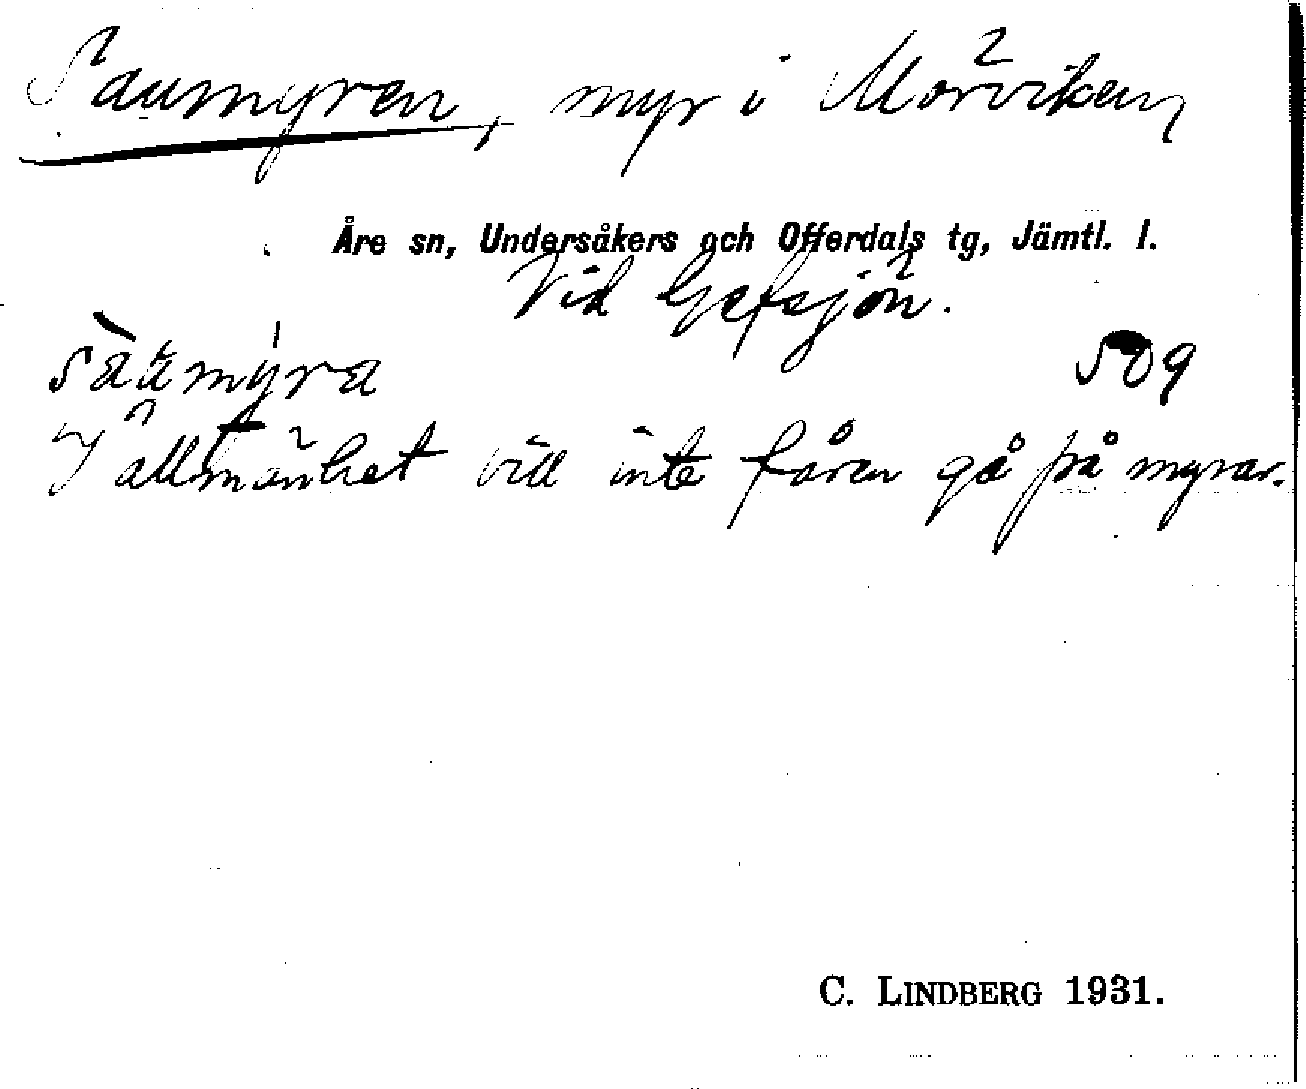 Saumyren, myr i Mörviken
Åre sn, Undersåkers och Offerdals tg, Jämtl. l.
Vid Gefsjön.
sàʉmýra 509
I allmänhet vill inte fåren gå på myrar.
C. LINDBERG 1931.